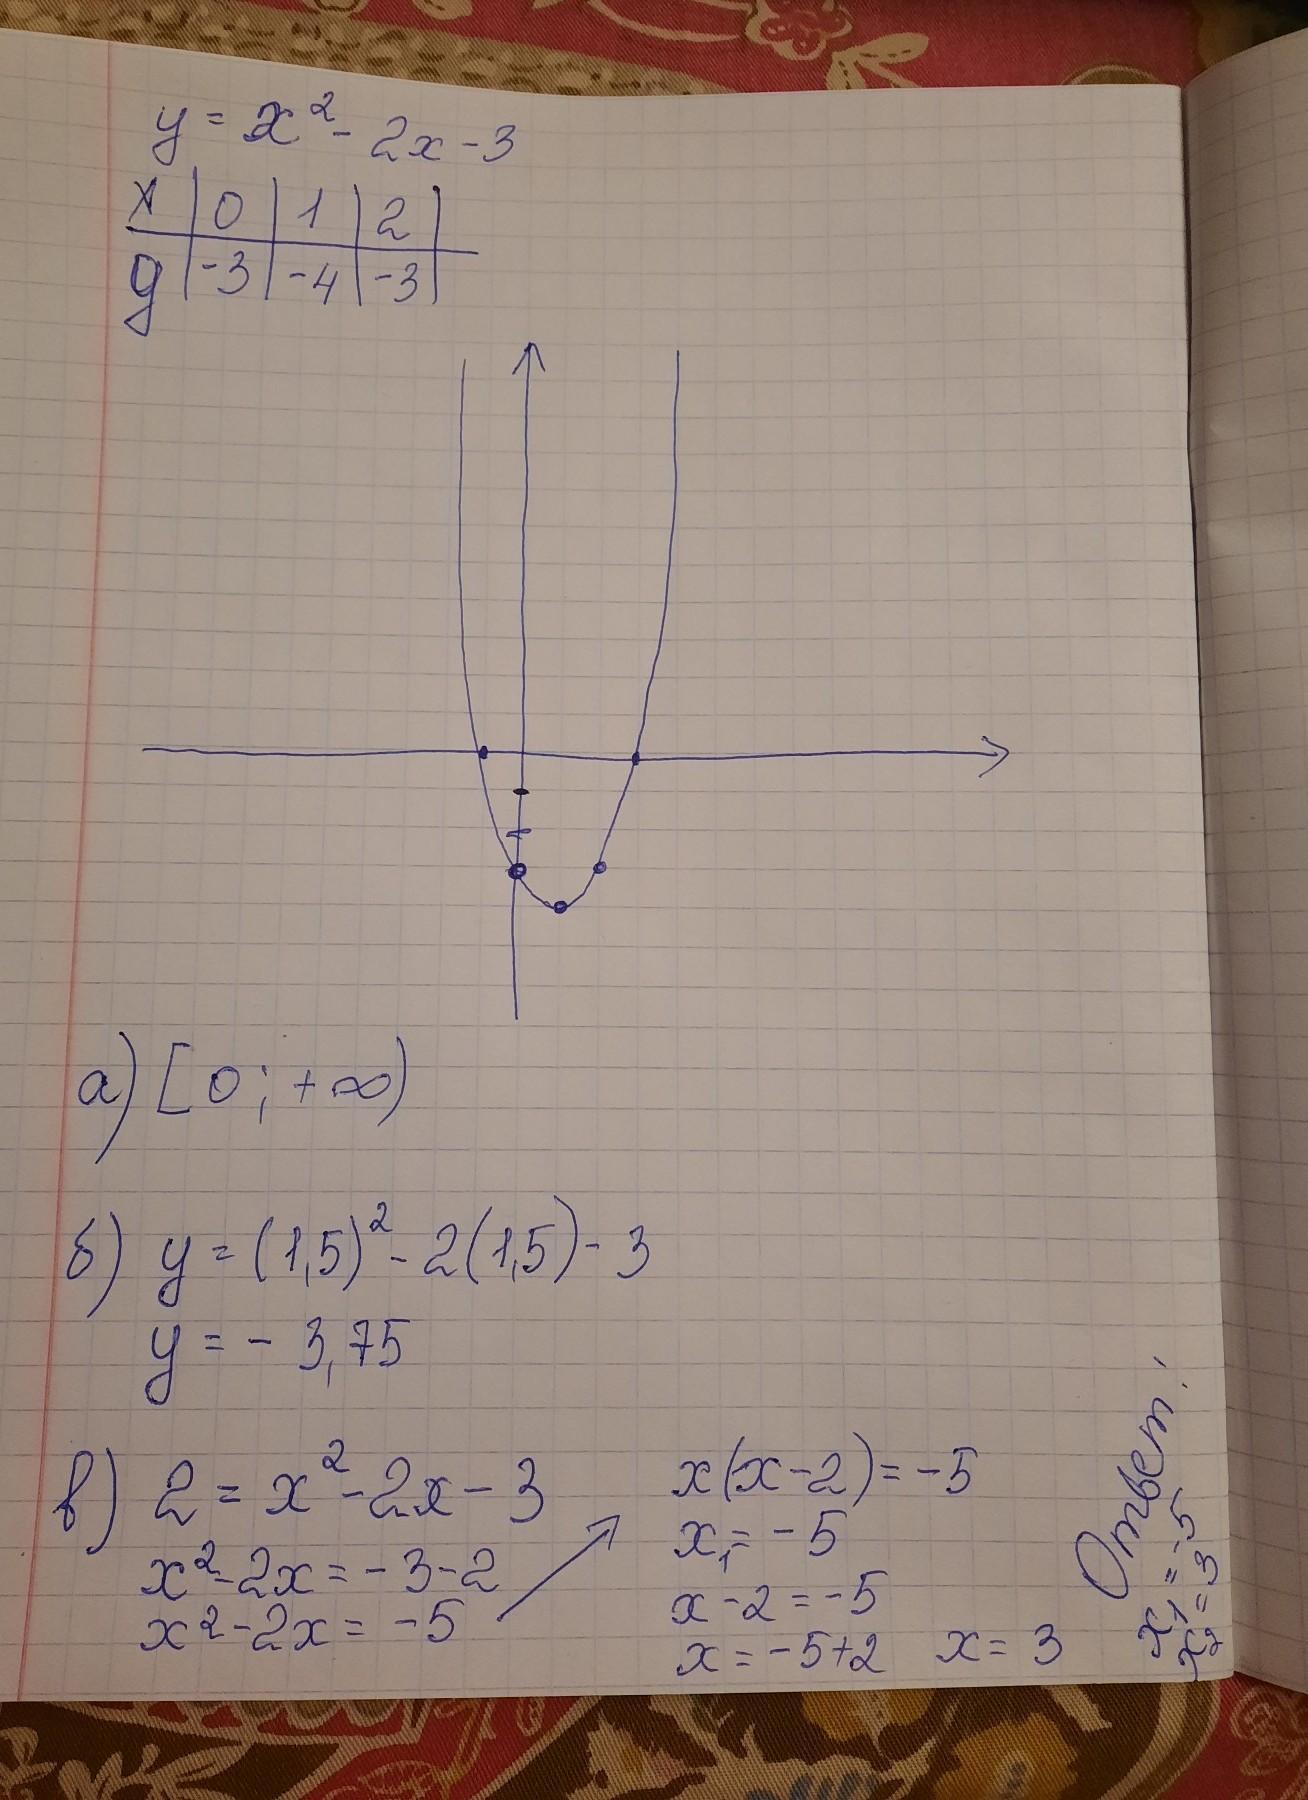 y = x² - 2x - 3
x | 0 | 1 | 2 |
y | -3 | -4 | -3 |
а) [0; +∞)
б) y = (1,5)² - 2(1,5) - 3
y = - 3,75
в) 2 = x² - 2x - 3
x² - 2x = -3-2
x² - 2x = -5
x(x-2) = -5
x₁ = -5
x - 2 = -5
x = -5+2   x = 3
Ответ:
x₁ = -5
x₂ = 3